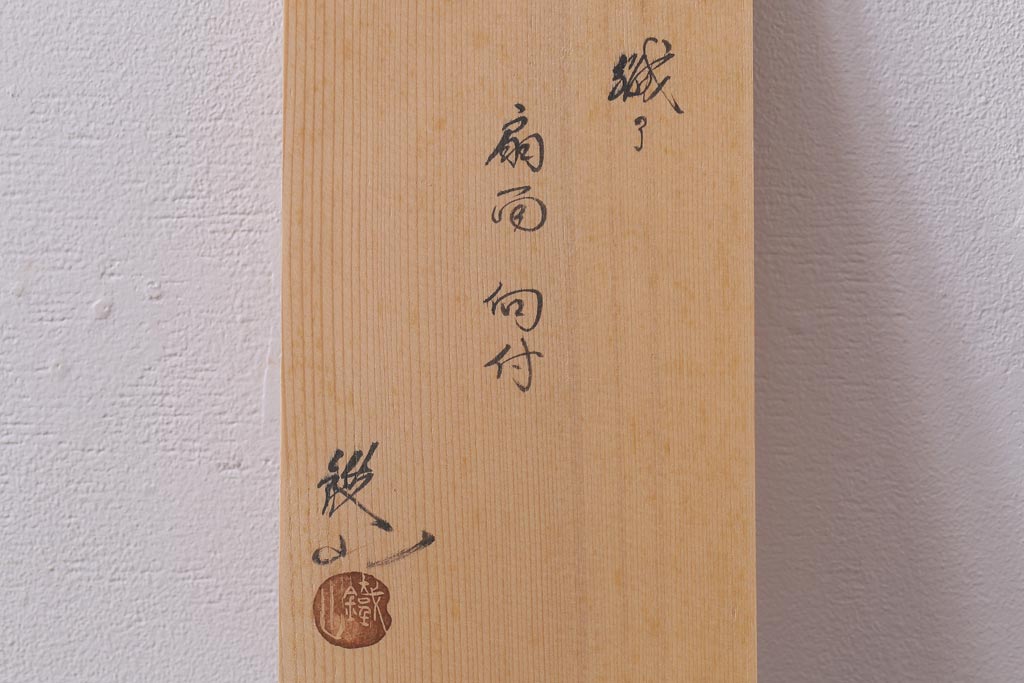 織部
扇面 向付
鐵山
鐵山